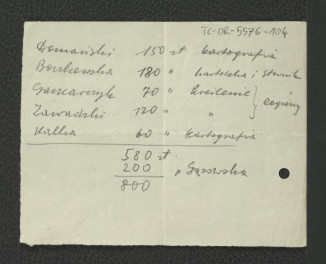 TC-OR-5576-104
Domański 150 zł kartografia
Boczkowska 180 " kartoteka i słownik
Gaszarczyk 70 " kreślenie
Zawadzki 120 " "
Kałka 60 " kartografia
580 zł
200 " Gąsowska
800